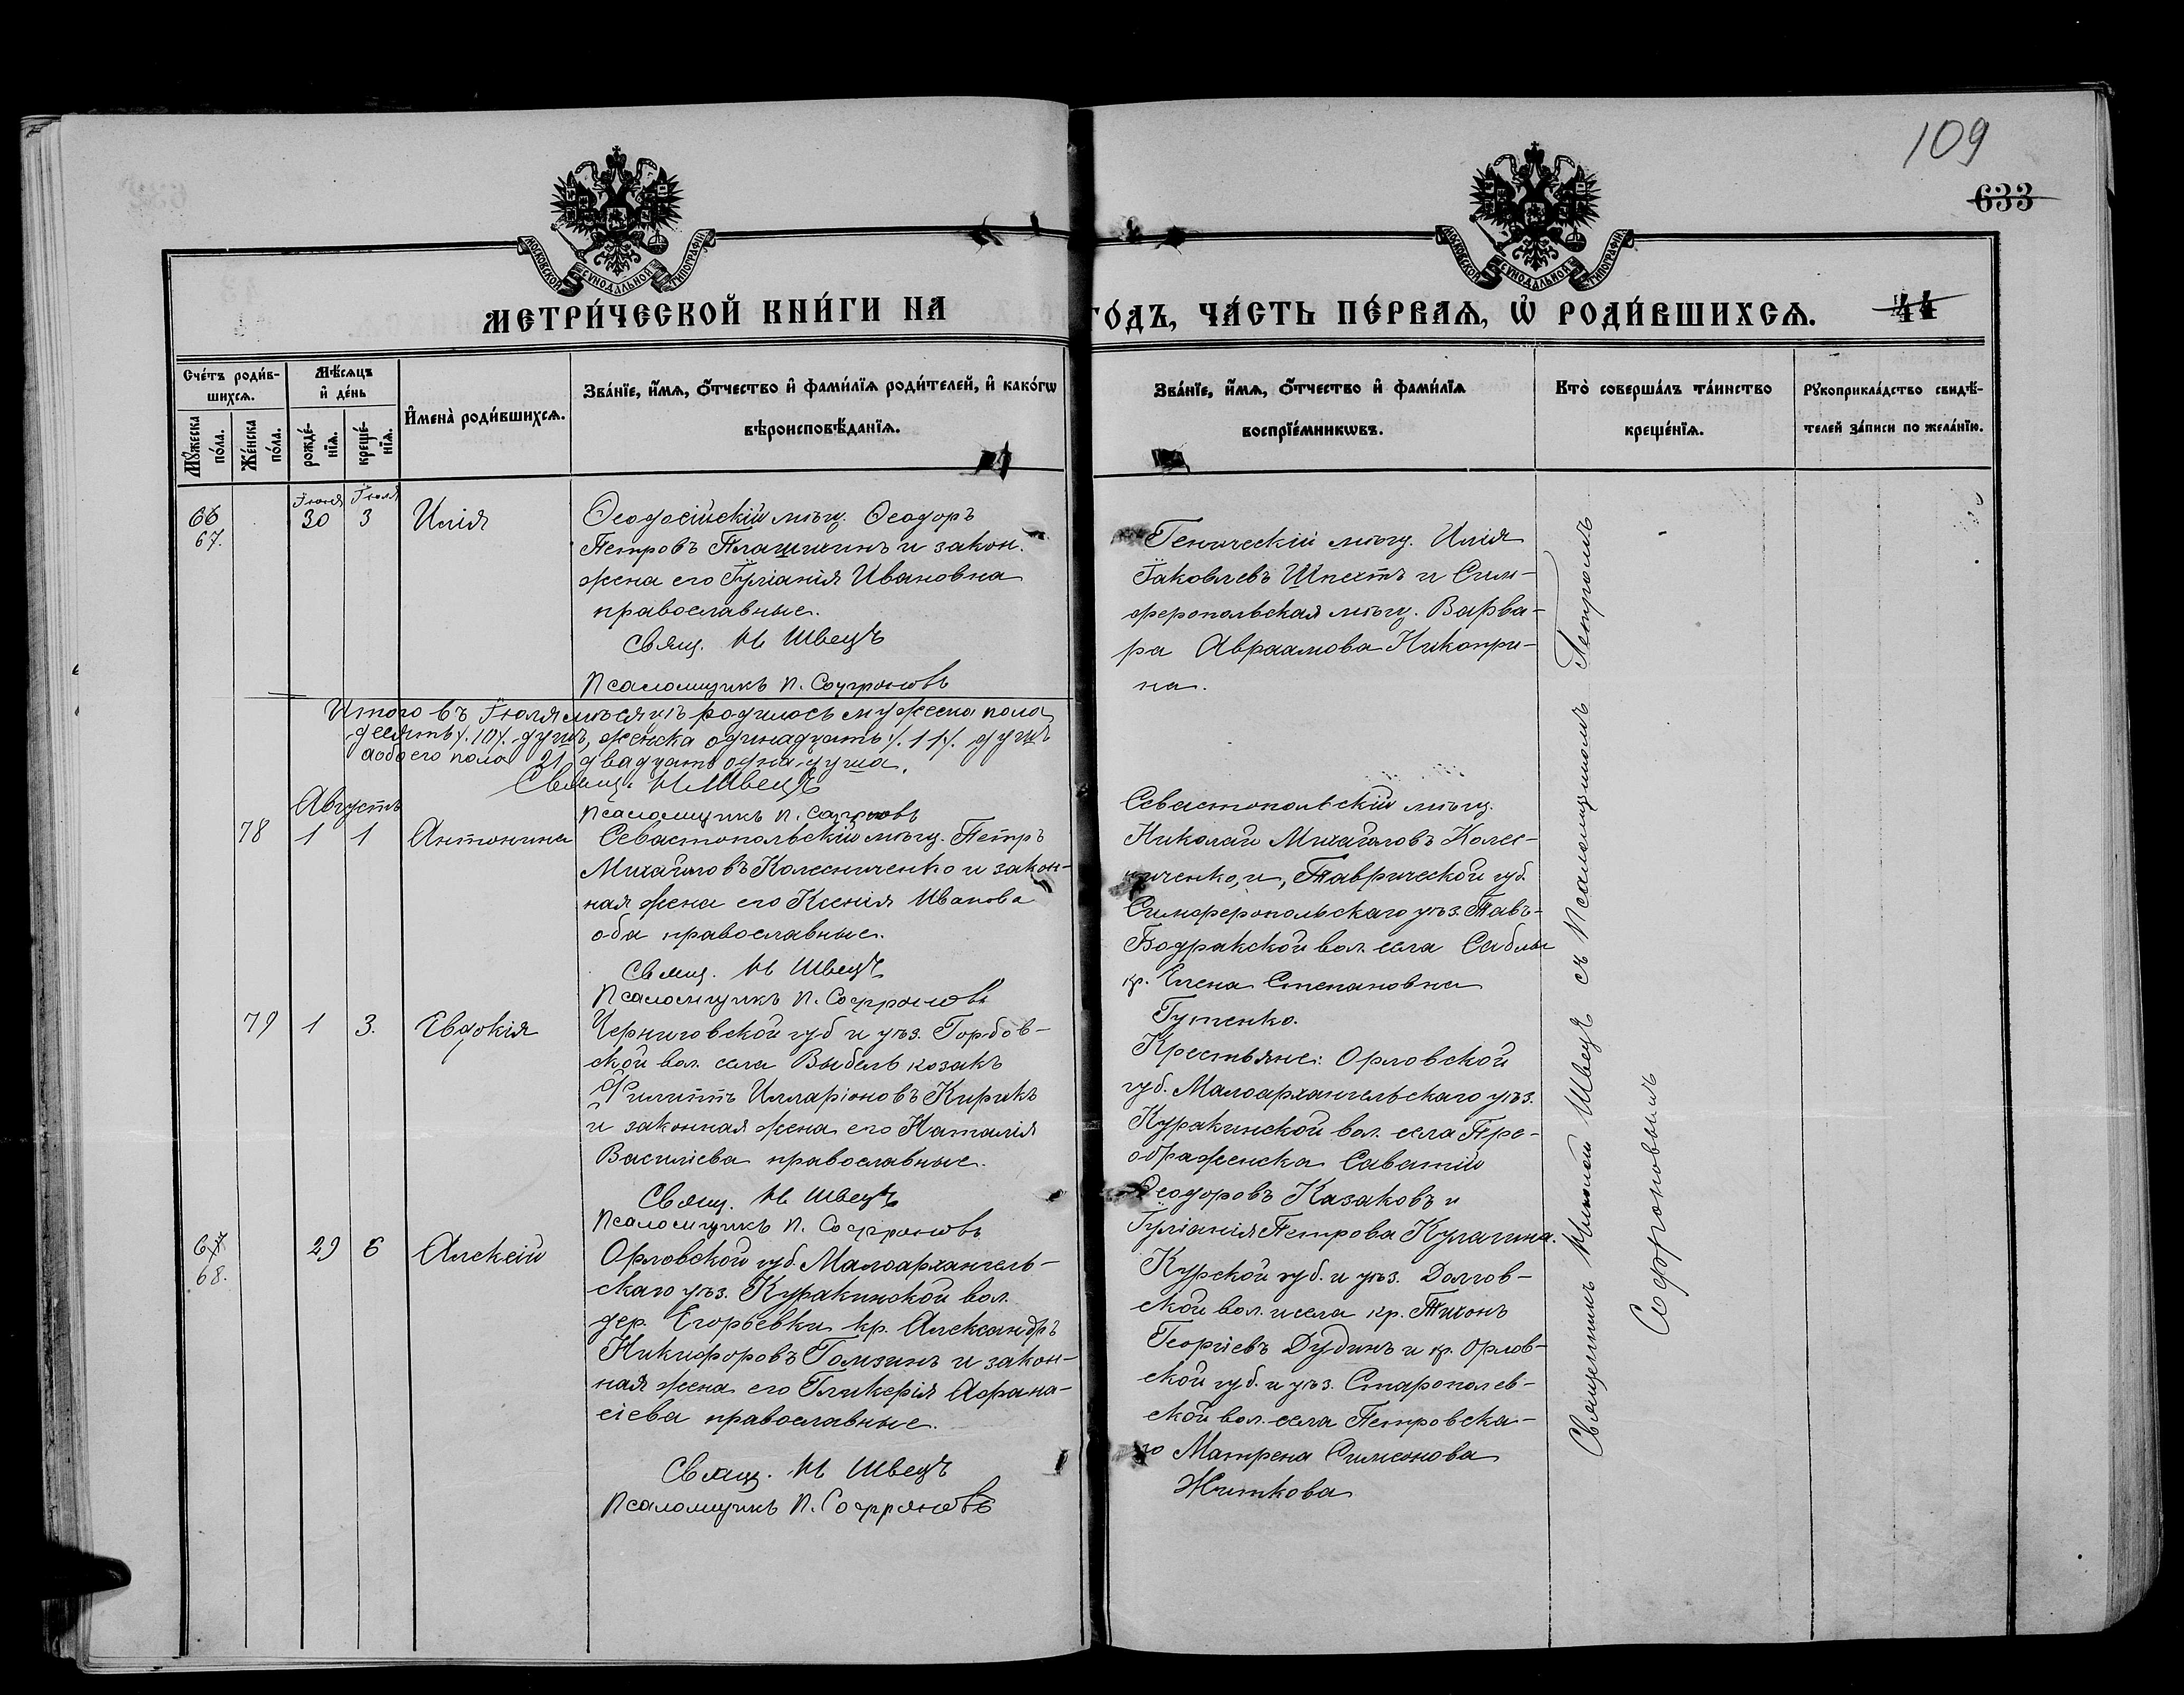 109
633
МОСКОВСКОЙ СѴНОДАЛЬНОЙ ТИПОГРАФІИ
МОСКОВСКОЙ СѴНОДАЛЬНОЙ ТИПОГРАФІИ
МЕТРИ́ЧЕСКОЙ КНИ́ГИ НА
ГО́ДЪ, ЧА́СТЬ ПЕ́РВАѦ, Ѡ҆ РОДИ́ВШИХСѦ.
44
Счéтъ роди́в-
шихсѧ.
Мꙋ́жеска
по́ла.
Же́нска
по́ла.
Мѣ́сѧцъ
и҆ де́нь
рожде́-
нїѧ.
креще́-
нїѧ.
И҆мена̀ роди́вшихсѧ.
Зва́нїе, и҆́мѧ, ѻ҆́тчество и҆ фами́лїѧ роди́телей, и҆ како́гѡ
вѣроисповѣ́данїѧ.
Зва́нїе, и҆́мѧ, ѻ҆́тчество и҆ фами́лїѧ
воспрїе́мникѡвъ.
Кто̀ соверша́лъ та́инство
креще́нїѧ.
Рꙋкоприкла́дство свидѣ́-
телей за́писи по жела́нїю.
66
67.
Іюня
30
Іюля
3
Илія
Ѳеодосійскій мѣщ. Ѳеодоръ
Петровъ Плашихинъ и закон.
жена его Іуліанія Ивановна
православные.
Свящ. Н Швецъ
Псаломщикъ П. Софроновъ
Геническій мѣщ. Илія
Іаковлевъ Шпехтъ и Сим-
феропольская мѣщ. Варва-
ра Авраамова Никопри-
на.
Итого въ Іюля мѣсяцѣ родилось мужеска пола
десять /.10/. душъ, женска одинадцать /.11/. душъ
а обоего пола 21 двадцать одна душа.
Свящ. Н. Швецъ
Псаломщикъ П. Софроновъ
Августъ
78
1
1
Антонина
Севастопольскій мѣщ. Петръ
Михайловъ Колесниченко и закон-
ная жена его Ксенія Иванова
оба православные.
Свящ. Н Швецъ
Псаломщикъ П. Софроновъ
Севастопольскій мѣщ.
Николай Михайловъ Колес-
ниченко, и, Таврической губ.
Симферопольскаго уѣз. Тавъ-
Бодракской вол. села Саблы
кр. Елена Степановна
Гутенко.
79
1
3.
Евдокія
Черниговской губ и уѣз. Горбов-
ской вол. села Выбель козакъ
Филиппъ Илларіоновъ Кирикъ
и законная жена его Наталія
Василіева православные.
Свящ. Н Швецъ
Псаломщикъ П. Софроновъ
Крестьяне: Орловской
губ. Малоархангельскаго уѣз.
Куракинской вол. села Пре-
ображенска Саватій
Ѳеодоровъ Казаковъ и
Іуліанія Петрова Кулагина.
67
68.
29
6
Алексій
Орловской губ. Малоархангель-
скаго уѣз. Куракинской вол.
дер. Егорьевки кр. Александръ
Никифоровъ Гомзинъ и закон-
ная жена его Гликерія Афана-
сіева православные.
Свящ. Н Швецъ
Псаломщикъ П. Софроновъ
Курской губ. и уѣз. Долгов-
ской вол. и села кр. Тихонъ
Георгіевъ Дудинъ и кр. Орлов-
ской губ. и уѣз. Старополев-
ской вол. села Петровска-
го Матрена Симеонова
Житкова
Священникъ Николай Швецъ съ Псаломщикомъ Петромъ
Софроновымъ